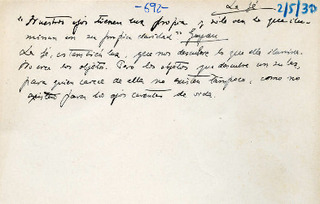 -692-
La fé
2/5/30
"Nuestros ojos tienen luz propia y sólo ven lo que ilu-
minan en su propia claridad" Goyau
La fé, es también luz, que nos descubre lo que ella ilumina.
No crea los objetos. Pero los objetos que descubre con su luz,
para quien carece de ella no existen tampoco, como no
existen para los ojos carentes de vida